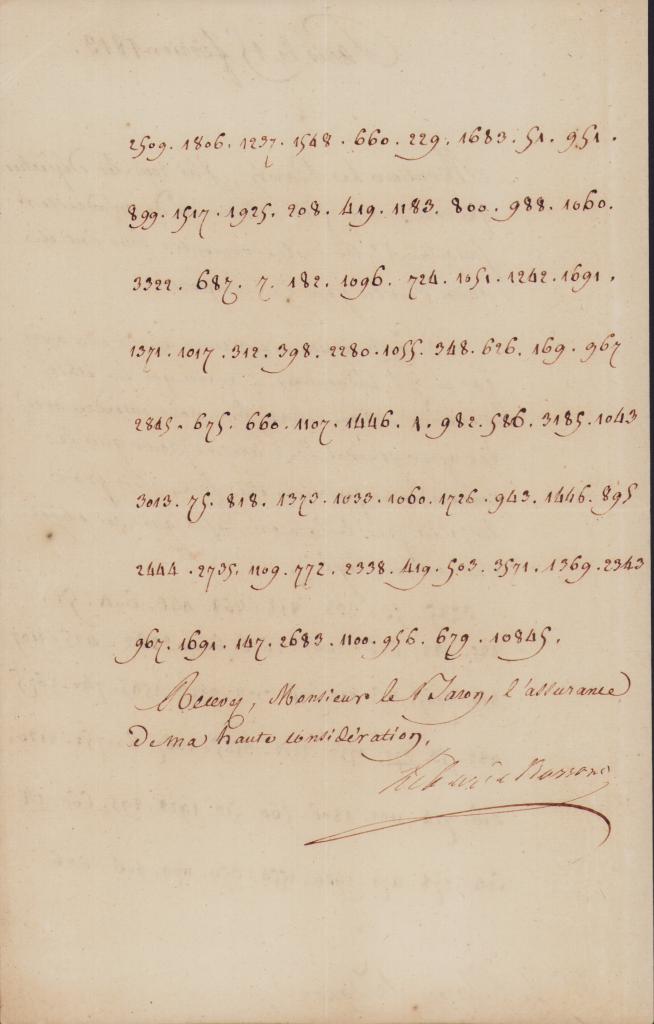 2509. 1806. 1237. 1548. 660. 229. 1683. 51. 951.
899. 1517. 1925. 208. 419. 1183. 800. 988. 1060.
3322. 687. 7. 182. 1096. 724. 1051. 1242. 1691.
1371. 1017. 312. 398. 2280. 1055. 348. 626. 169. 967
2845. 675. 660. 1107. 1446. 1. 982. 586. 3185. 1043
3013. 75. 818. 1373. 1033. 1060. 1726. 943. 1446. 895
2444. 2735. 1109. 772. 2338. 419. 503. 3571. 1369. 2343
967. 1691. 147. 2683. 1100. 956. 679. 10845.
Recevez, Monsieur le Baron, l'assurance
de ma haute considération,
Le Duc de Bassano